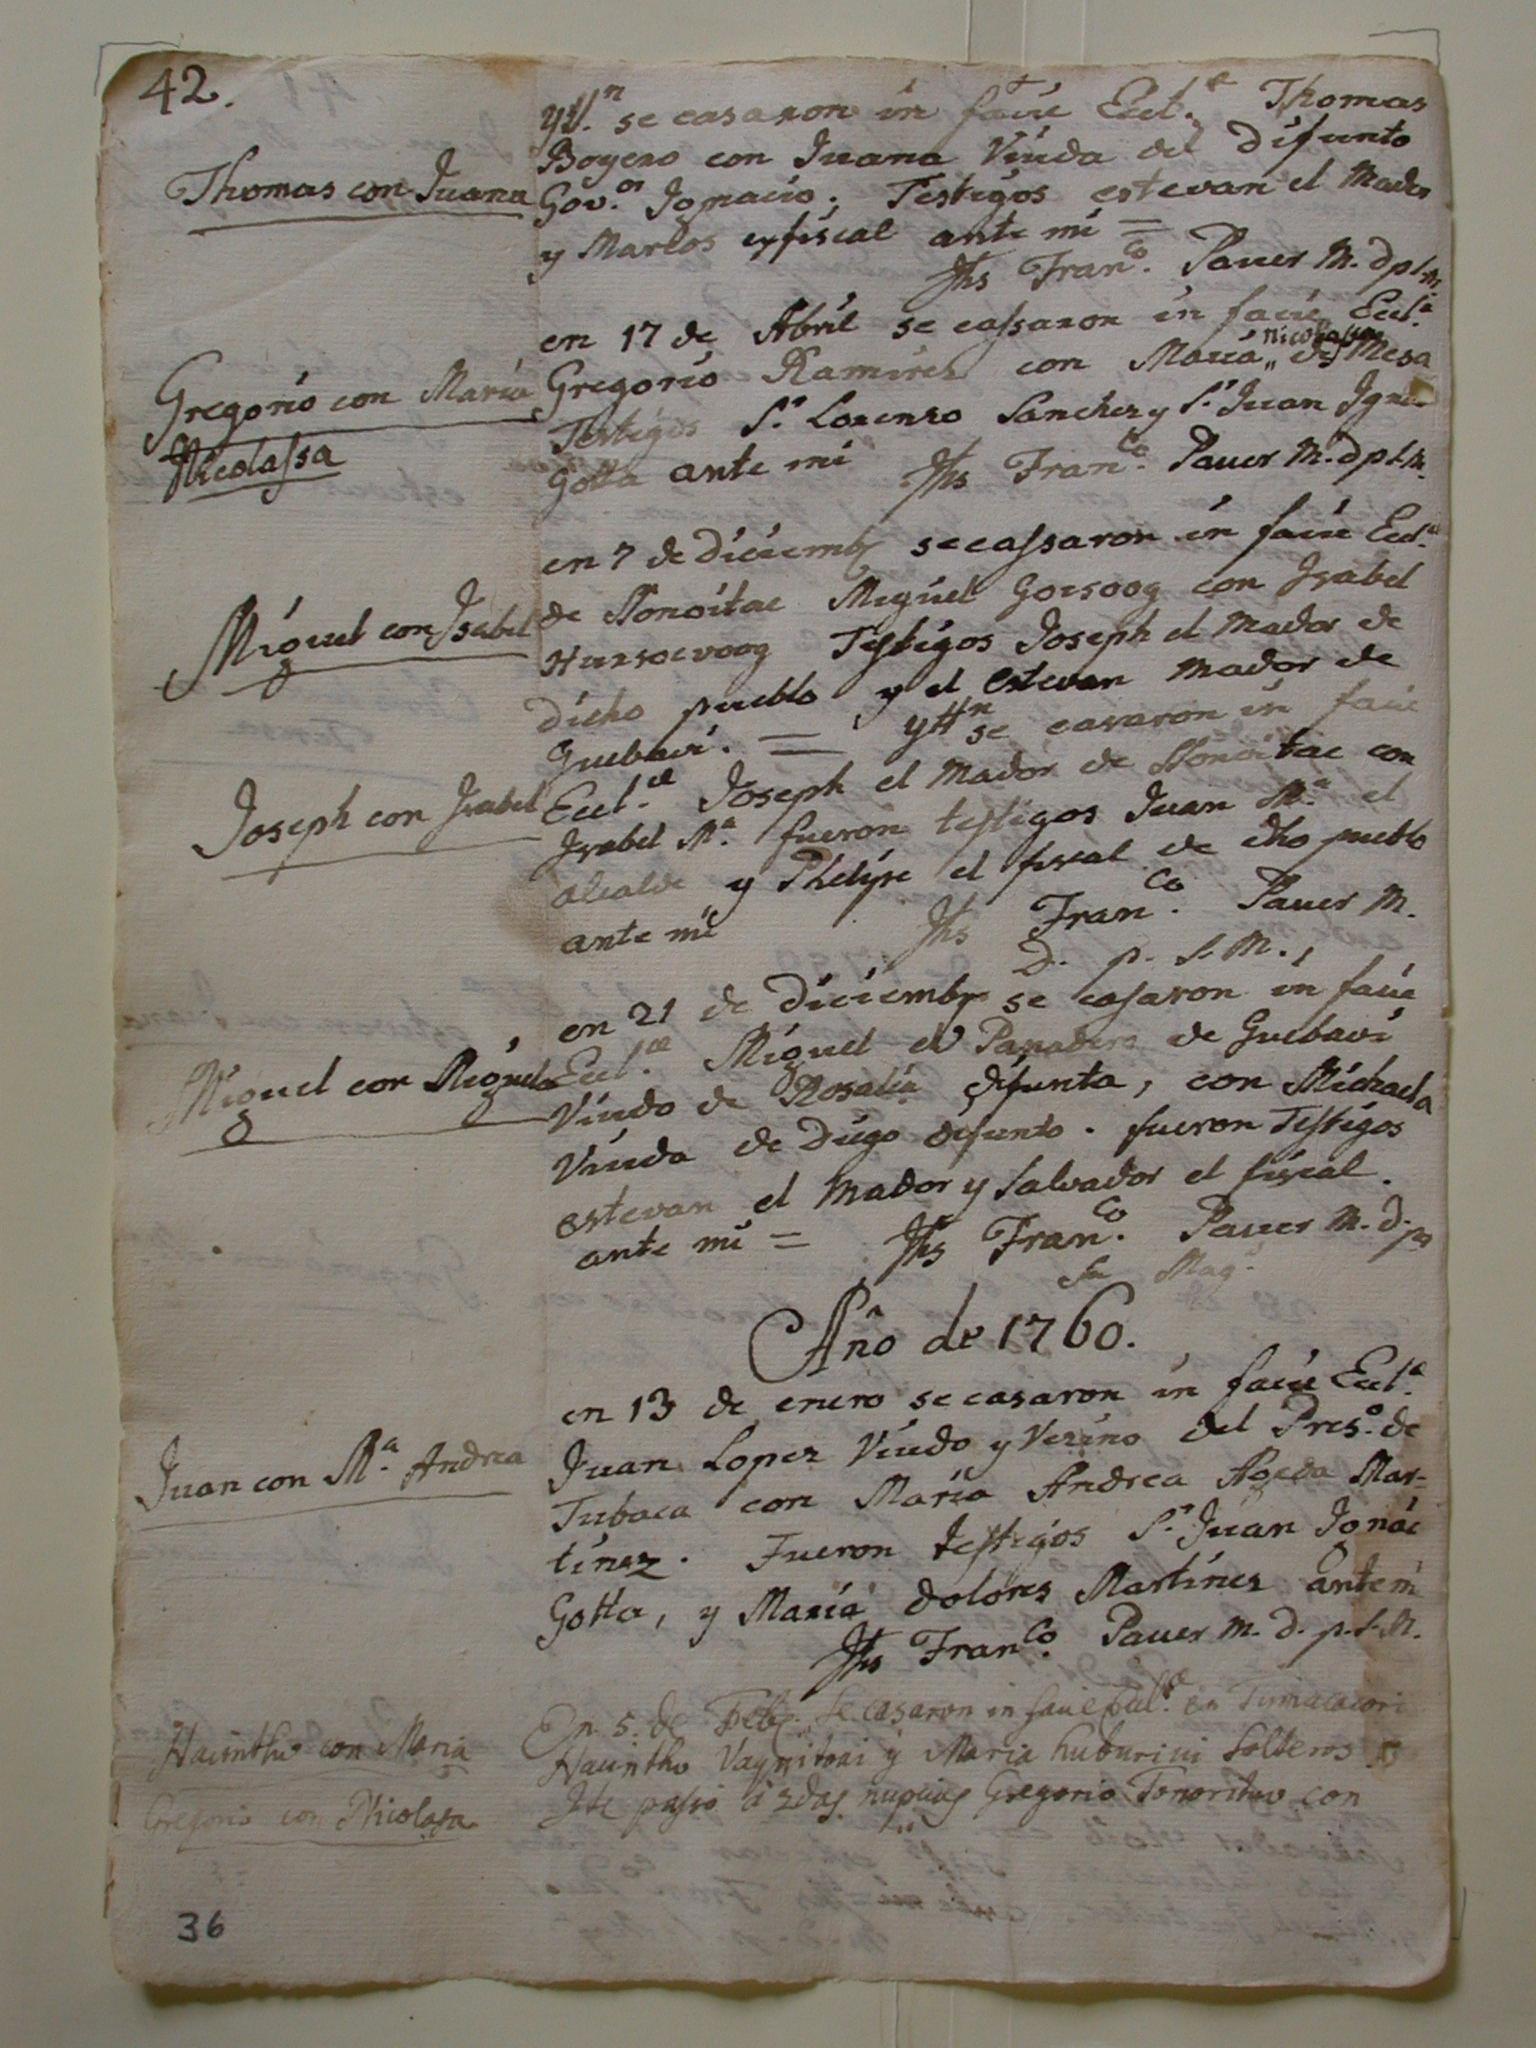 42.
ytt.n se casaron in facie Eccl.e Thomas
Boyero con Juana Viuda del Difunto
Thomas con Juana
Gov.or Ignacio. Testigos estevan el Mador
y Marcos fiscal ante mi =
Jhs Fran.co Pauer M. D p. S. M.
en 17 de Abril se cassaron in facie Eccl.a
nicolassa
Gregorio con Maria
Nicolassa
Gregorio Ramirez con Maria „ de Mesa
Testigos S.r Lorenzo Sanchez y S.r Juan Igna
Gotta ante mi Jhs Fran.co Pauer M. D p. S. M.
en 7 de Diciemb se cassaron in facie Eccl.a
Miguel con Isabel
de Sonoitac Miguel Goisoog con Isabel
Testigos Joseph el Mador de
dicho pueblo y el estevan Mador de
Guebavi. = ytt.n se casaron in facie
Joseph con Isabel
Eccl.ae Joseph el Mador de Sonoitac con
Isabel M.a fueron testigos Juan M.a el
alcalde y Phelipe el fiscal de dho pueblo
ante mi Jhs Fran.co Pauer M.
D. p. S. M.
en 21 de Diciembr se casaron in facie
Miguel con Miguela
Eccl.ae Miguel el Panadero de Guebavi
Viudo de Rosalia difunta, con Michaela
Viuda de Diego difunto. fueron Testigos
estevan el Mador y Salvador el fiscal.
ante mi = Jhs Fran.co Pauer M. D. p.
Su Mag.
Año de 1760.
en 13 de enero se casaron in facie Eccl.a
Juan con M.a Andrea
Juan Lopez Viudo y Vezino del Pres.o de
Tubaca con Maria Andrea Ageda Mar-
tinez. Fueron testigos S.r Juan Ignac
Gotta, y Maria Dolores Martinez ante mi
Jhs Fran.co Pauer M. D. p. S. M.
En 5. de Feb. se casaron in facie Eccl.ae en Tumacacori
Hacintho con Maria
Hacintho Vaynitoni y Maria huburini Solteros
Gregorio con Nicolasa
Ite passò à 2das nupcias Gregorio Tonoritno con
36